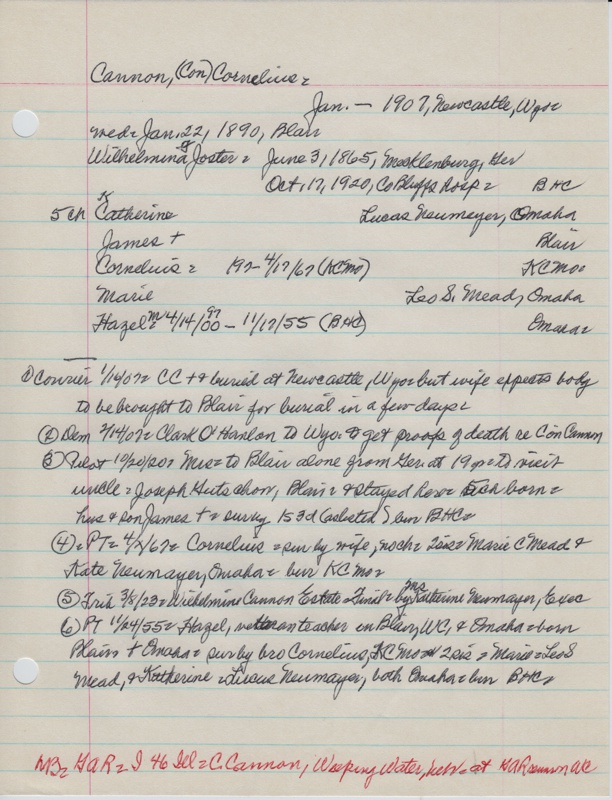 Cannon, (Con) Cornelius =
Jan. – 1907, Newcastle, Wyo=
med= Jan. 22, 1890, Blair
Wilhelmina Joster = June 3, 1865, Mecklenburg, Ger
Oct. 17, 1920, Co Bluffs Hosp = BHC
K
5 ch Catherine Lucas Neumeyer, Omaha
James + Blair
Cornelius = 19?- 4/17/67 (KCMo) KCMo=
Marie Leo S. Mead, Omaha
97
Hazel= 4/14/00 – 11/17/55 (BHC) Omaha=
① Courier 1/14/07= CC + & buried at Newcastle, Wyo= but wife expects body
to be brought to Blair for burial in a few days=
② Dem 2/14/07= Clark O'Hanlon to Wyo. to get proofs of death re Con Cannon
③ Pilot 10/20/20= Mrs= to Blair alone from Ger. at 19 yr= to visit
uncle = Joseph Gutschow, Blair = & stayed here= 5 ch born=
hus & son James + = surv by 1 s 3 d (as listed) bur BHC=
④ = PT= 4/2/67= Cornelius = sur by wife, no ch= 2 sis= Marie C Mead &
Kate Neumayer, Omaha= bur KCMo=
⑤ Trib 3/5/23= Wilhelmina Cannon Estate= Final= by Mrs Katherine Neumayer, Exec
⑥ PT 11/24/55= Hazel, veteran teacher in Blair, WC, & Omaha= born
Blair + Omaha= sur by bro Cornelius, KCMo 2 sis = Marie= Leo S
Mead, & Katherine = Lucus Neumayer, both Omaha= bur BHC=
NB= GAR= I 46 Ill= C. Cannon, Weeping Water, Neb= at GAR reunion WC